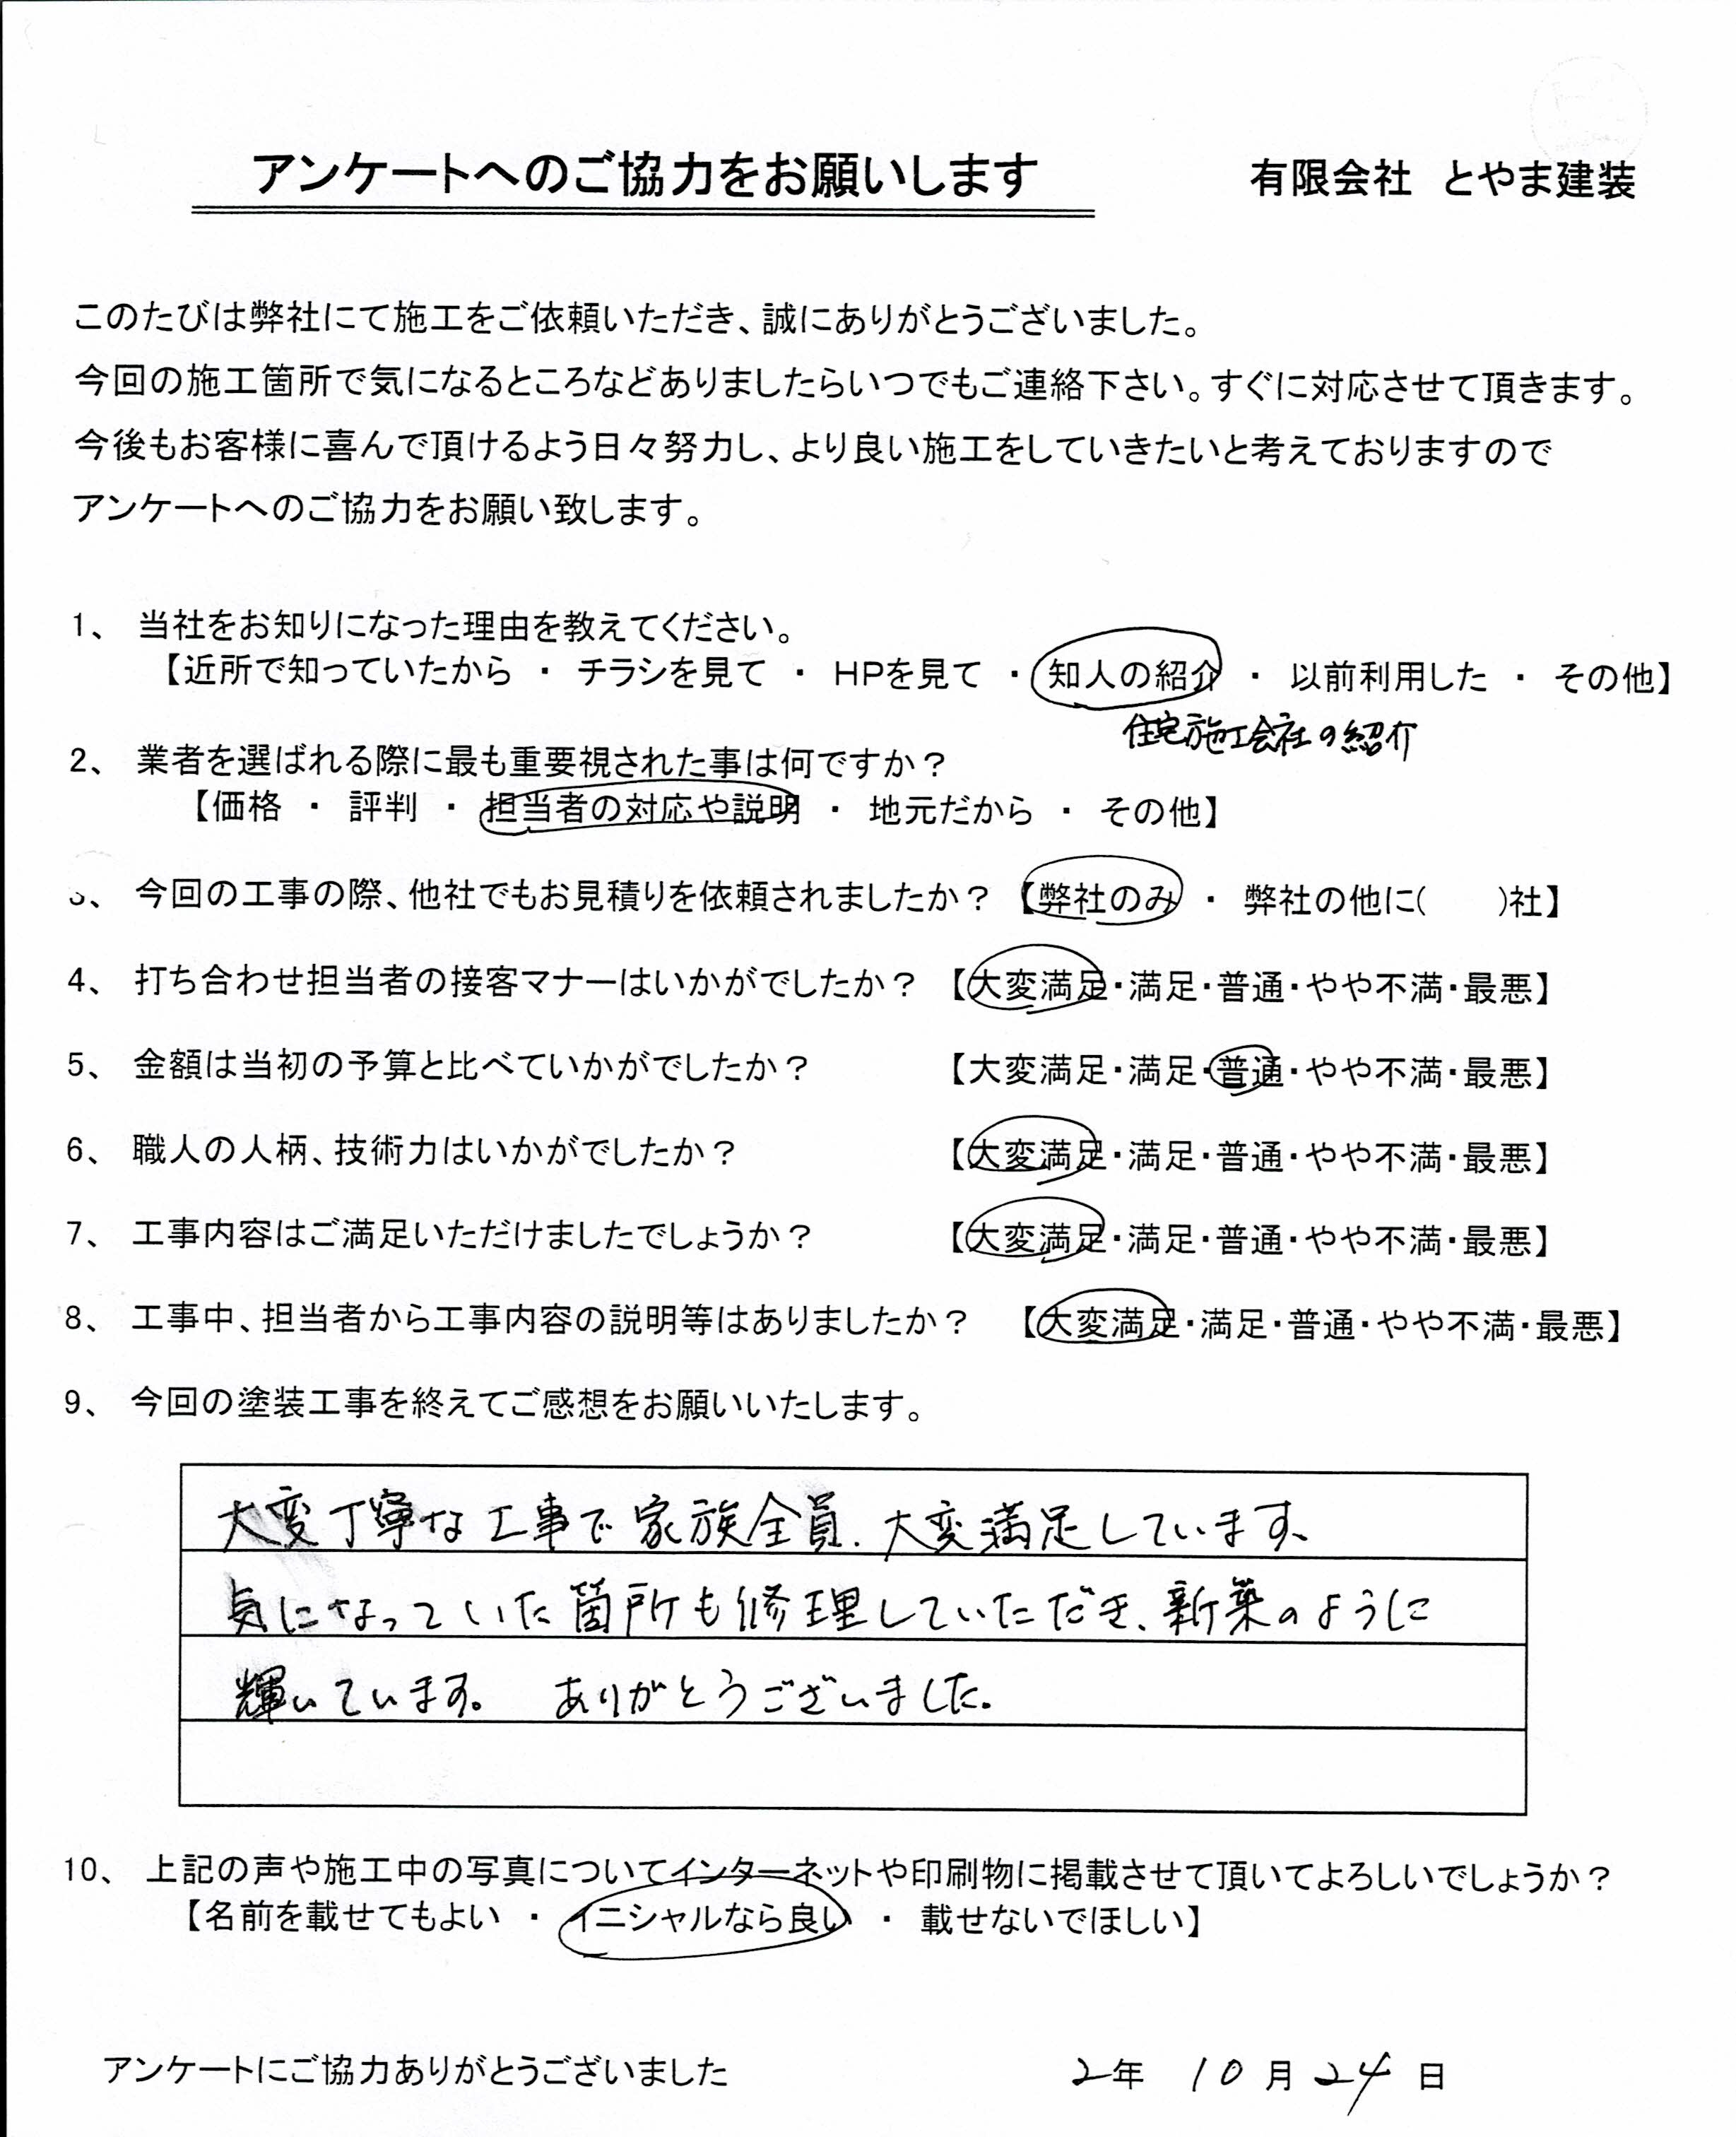 アンケートへのご協力をお願いします　有限会社　とやま建装
このたびは弊社にて施工をご依頼いただき、誠にありがとうございました。
今回の施工箇所で気になるところなどありましたらいつでもご連絡下さい。すぐに対応させて頂きます。
今後もお客様に喜んで頂けるよう日々努力し、より良い施工をしていきたいと考えておりますので
アンケートへのご協力をお願い致します。
1、 当社をお知りになった理由を教えてください。
【近所で知っていたから ・ チラシを見て ・ HPを見て ・ 知人の紹介 ・ 以前利用した ・ その他】
住宅施工会社の紹介
2、 業者を選ばれる際に最も重要視された事は何ですか？
【価格 ・ 評判 ・ 担当者の対応や説明 ・ 地元だから ・ その他】
3、 今回の工事の際、他社でもお見積りを依頼されましたか？ 【弊社のみ ・ 弊社の他に(　　)社】
4、 打ち合わせ担当者の接客マナーはいかがでしたか？ 【大変満足・満足・普通・やや不満・最悪】
5、 金額は当初の予算と比べていかがでしたか？ 【大変満足・満足・普通・やや不満・最悪】
6、 職人の人柄、技術力はいかがでしたか？ 【大変満足・満足・普通・やや不満・最悪】
7、 工事内容はご満足いただけましたでしょうか？ 【大変満足・満足・普通・やや不満・最悪】
8、 工事中、担当者から工事内容の説明等はありましたか？ 【大変満足・満足・普通・やや不満・最悪】
9、 今回の塗装工事を終えてご感想をお願いいたします。
大変丁寧な工事で家族全員、大変満足しています、
気になっていた箇所も修理していただき、新築のように
輝いています。 ありがとうございました。
10、 上記の声や施工中の写真についてインターネットや印刷物に掲載させて頂いてよろしいでしょうか？
【名前を載せてもよい ・ イニシャルなら良い ・ 載せないでほしい】
アンケートにご協力ありがとうございました　2年 10月 24日